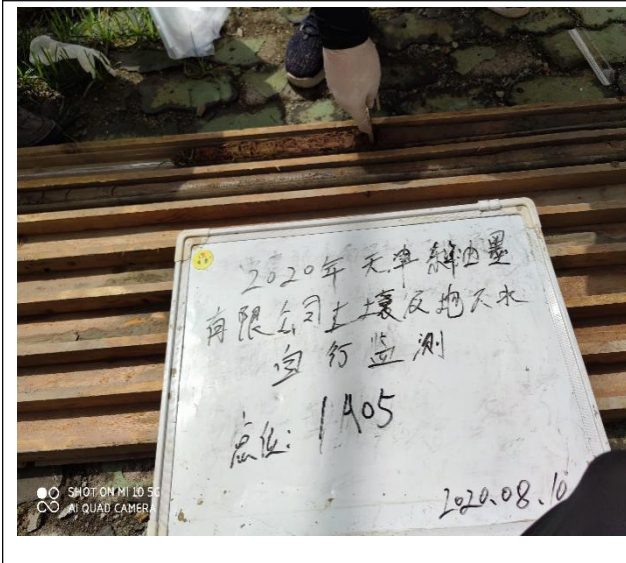 2020年天津東洋油墨
有限公司土壤及地下水
自行监测
点位: 1A05
2020.08.10
SHOT ON MI 10 5G
AI QUAD CAMERA